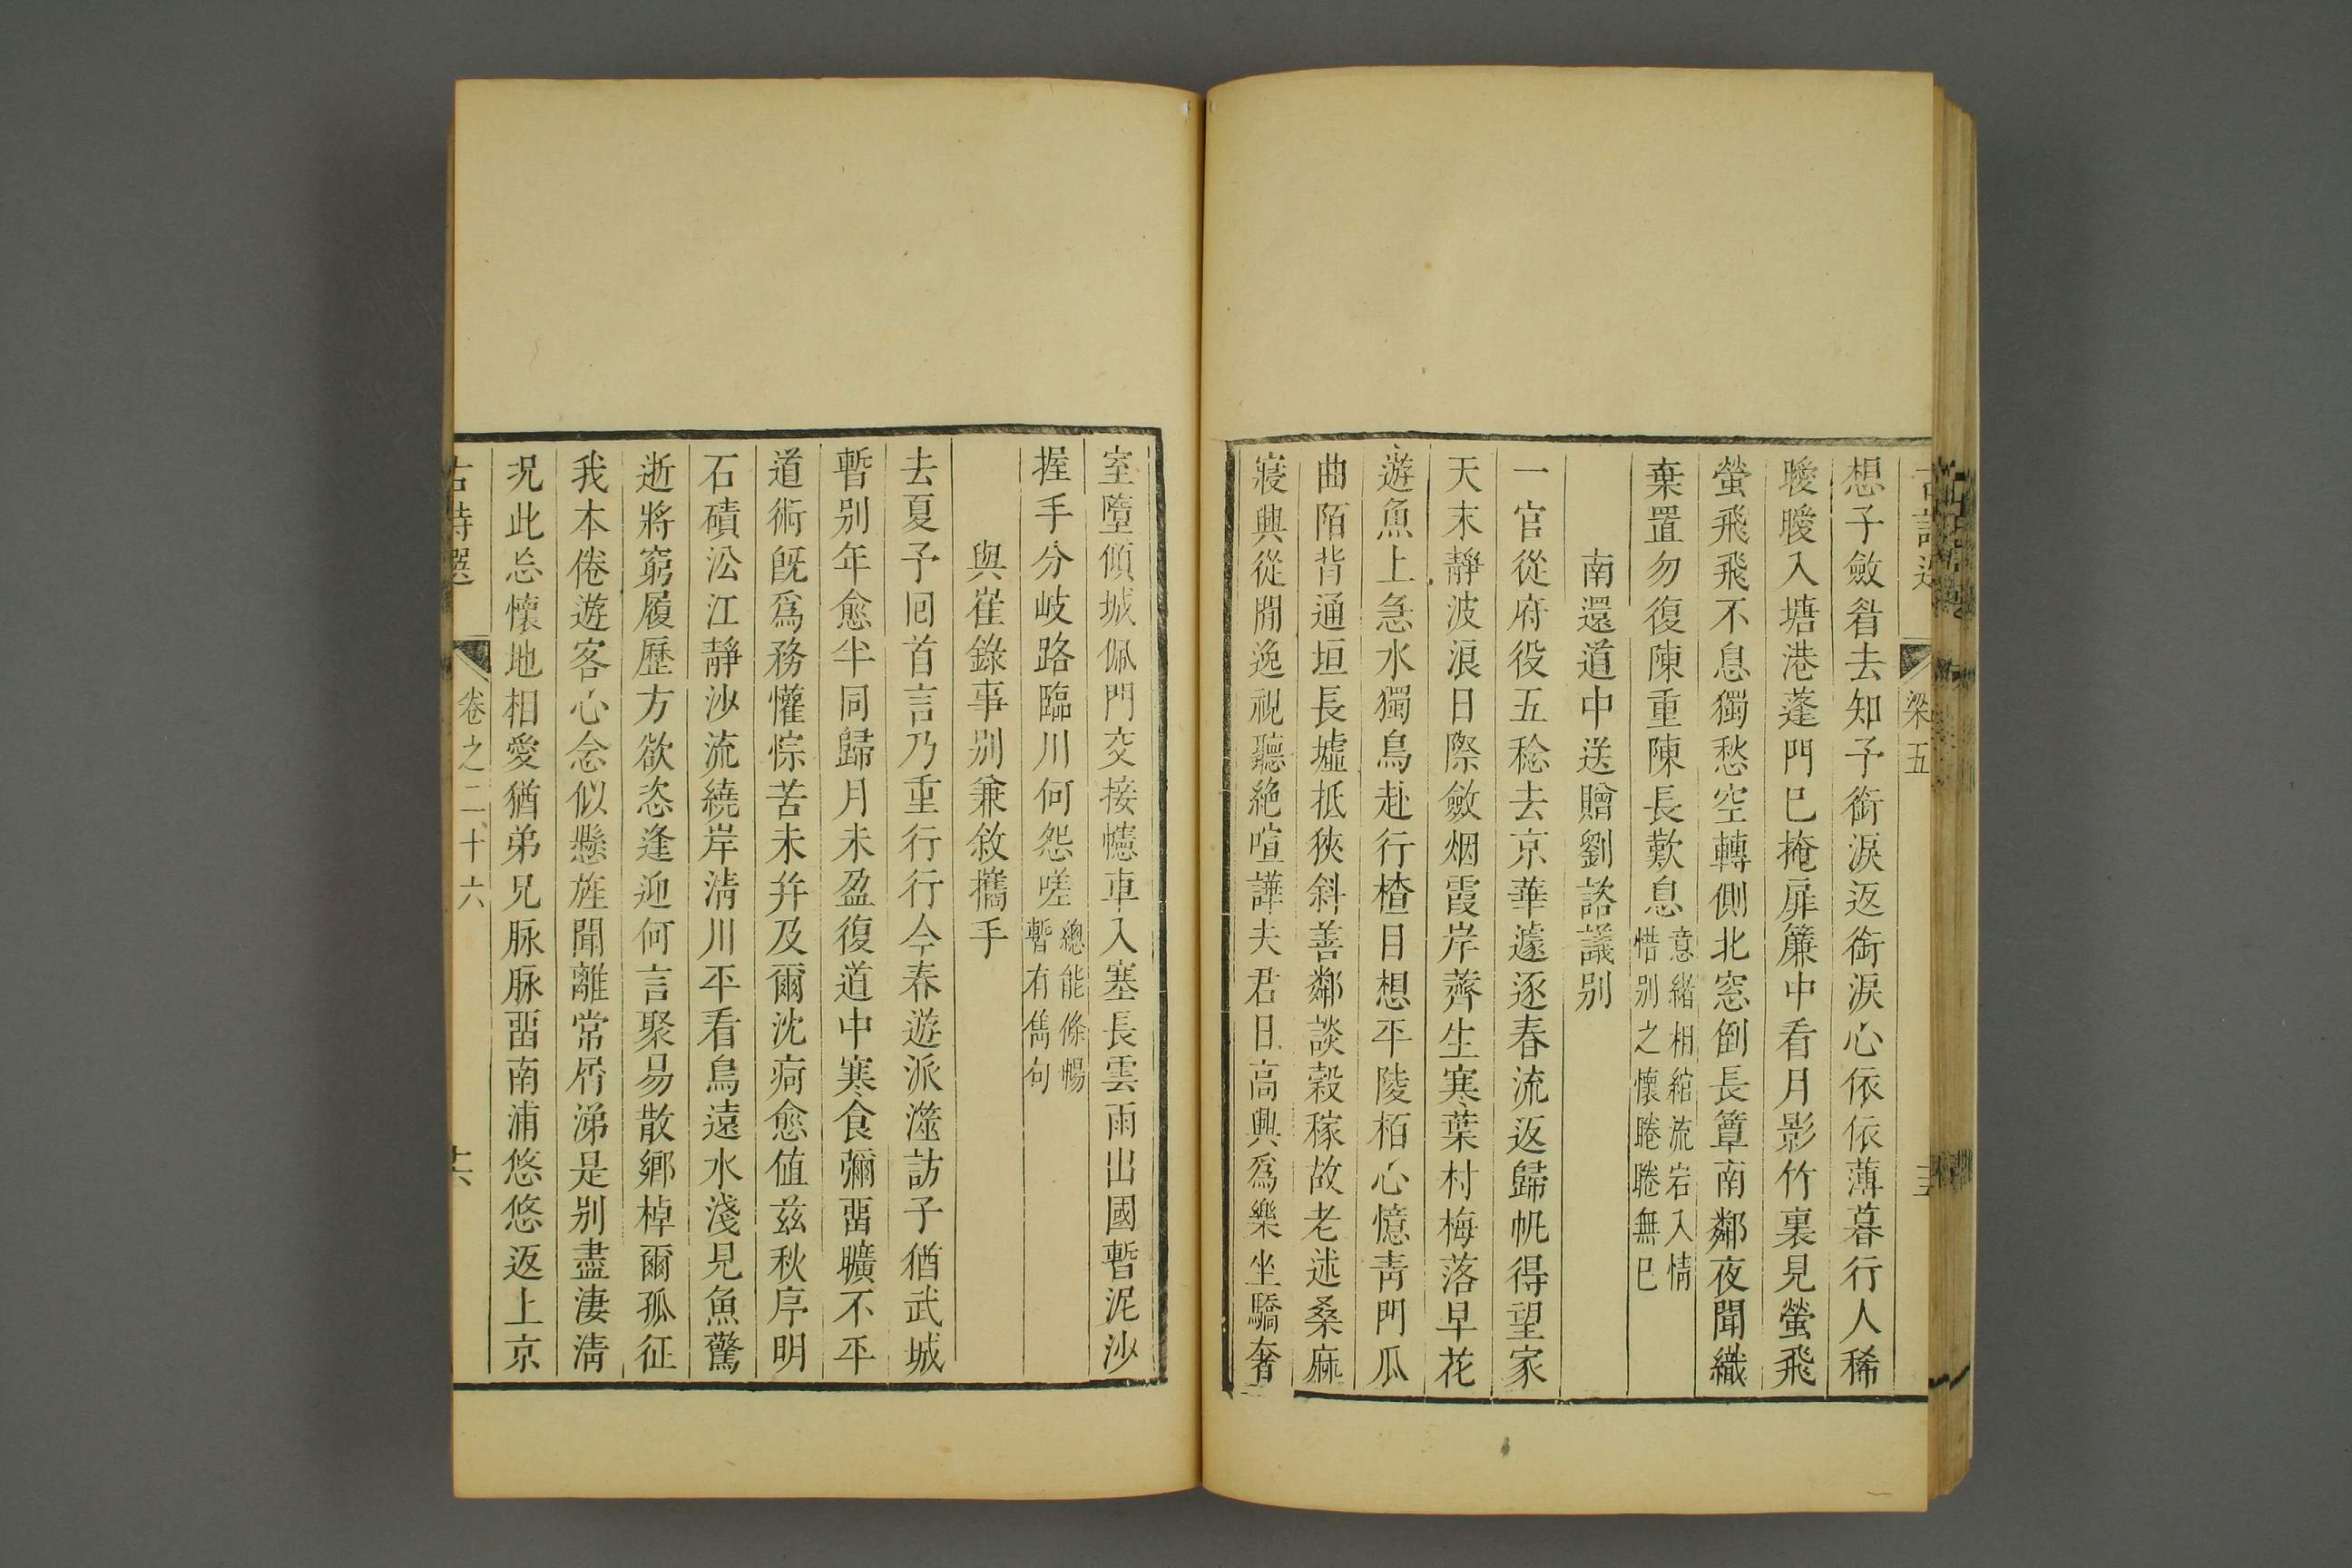 梁五
想子斂眉去知子銜淚返銜淚心依依薄暮行人稀
曖曖入塘港蓬門已掩扉簾中看月影竹裏見螢飛
螢飛飛不息獨愁空轉側北窓倒長簟南鄰夜聞織
棄置勿復陳重陳長歎息
意緒相綰流宕入情
惜别之懷睠睠無已
南還道中送贈劉諮議别
一官從府役五稔去京華遽逐春流返歸帆得望家
天末靜波浪日際斂烟霞岸薺生寒葉村梅落早花
遊魚上急水獨鳥赴行楂目想平陵栢心憶青門瓜
曲陌背通垣長墟抵狹斜善鄰談穀稼故老述桑麻
寢興從閒逸視聽絶喧譁夫君日高興爲樂坐驕奢
室墮傾城佩門交接幰車入塞長雲雨出國暫泥沙
握手分岐路臨川何怨嗟
總能條暢
暫有雋句
與崔錄事别兼敘攜手
去夏予囘首言乃重行行今春遊派澨訪子猶武城
暫别年愈半同歸月未盈復道中寒食彌畱曠不平
道術旣爲務懽悰苦未幷及爾沈痾愈值茲秋序明
石磧沿江靜沙流繞岸淸川平看鳥遠水淺見魚驚
逝將窮履歷方欲恣逢迎何言聚易散鄕棹爾孤征
我本倦遊客心念似懸旌聞離常屑涕是别盡淒淸
况此忘懷地相愛猶弟兄脉脉畱南浦悠悠返上京
古詩選
卷之二十六